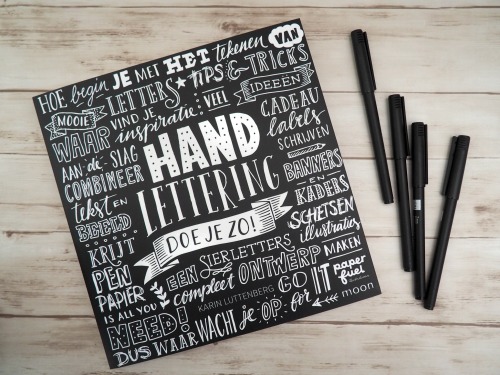 HOE begin JE MET HET tekenen VAN
MOOIE LETTERS TIPS & TRICKS
WAAR VIND JE inspiratie VEEL IDEEËN
AAN de SLAG CADEAU labels
COMBINEER SCHRIJVEN
tekst EN BEELD BANNERS EN KADERS
HAND
LETTERING
DOE JE ZO!
KRIJT SCHETSEN
PEN illustraties
PAPIER EEN SIERLETTERS MAKEN
IS ALL YOU compleet ONTWERP
NEED! KARIN LUTTENBERG GO for IT paper fuel
DUS WAAR WACHT je OP. moon